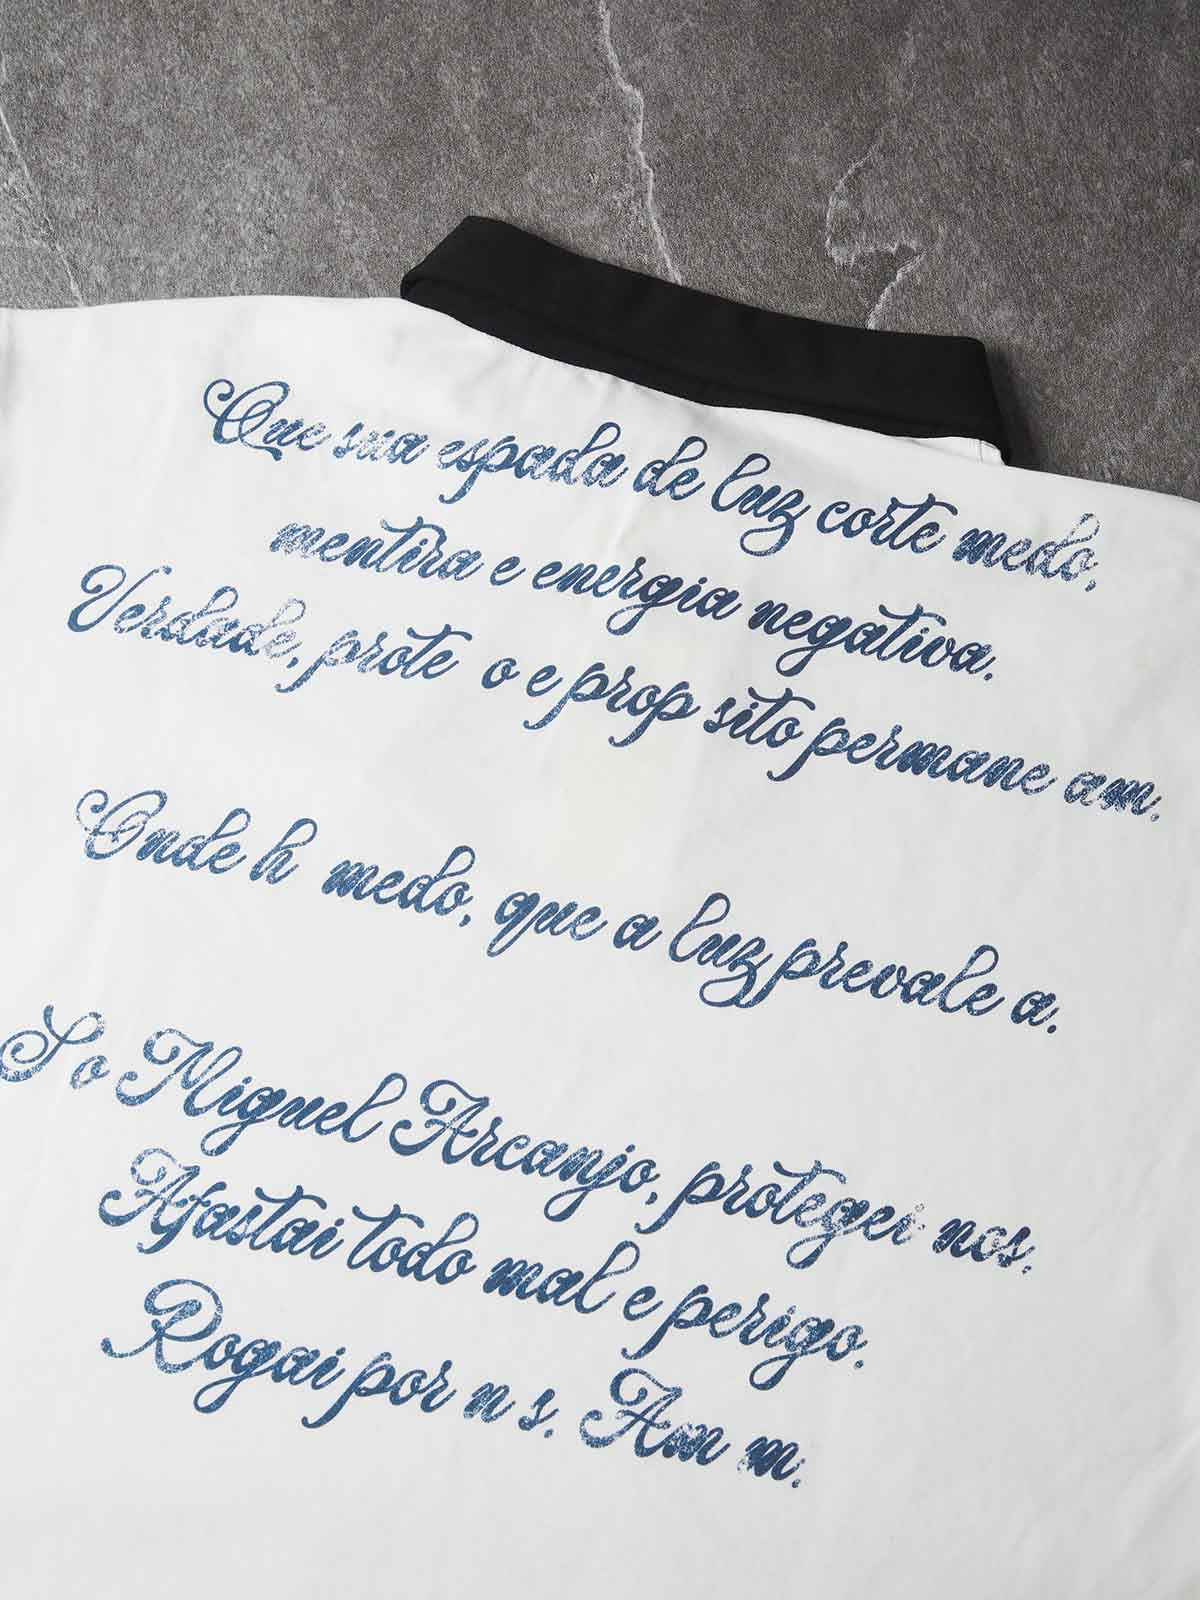 Que sua espada de luz corte medo,
mentira e energia negativa.
Verdade, prote  o e prop sito permane am.
Onde h  medo, que a luz prevale a.
S o Miguel Arcanjo, protegei nos.
Afastai todo mal e perigo.
Rogai por n s. Am m.